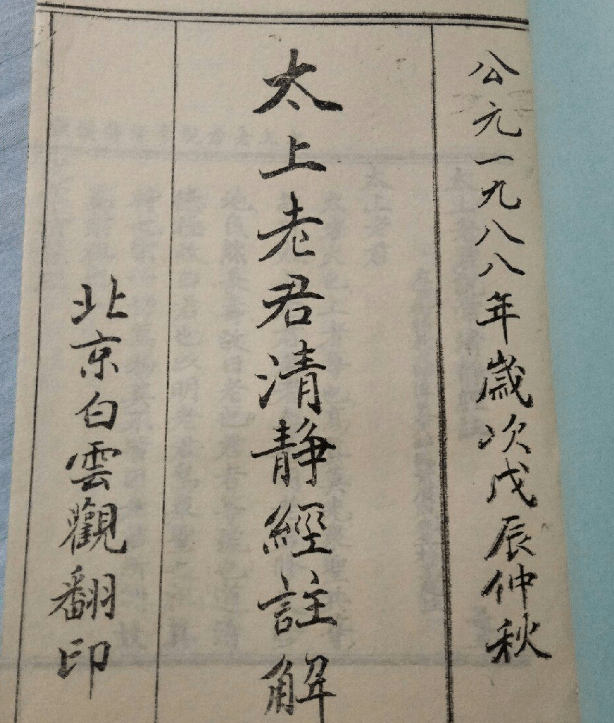 公元一九八八年歲次戊辰仲秋
太上老君清靜經註解
北京白雲觀翻印